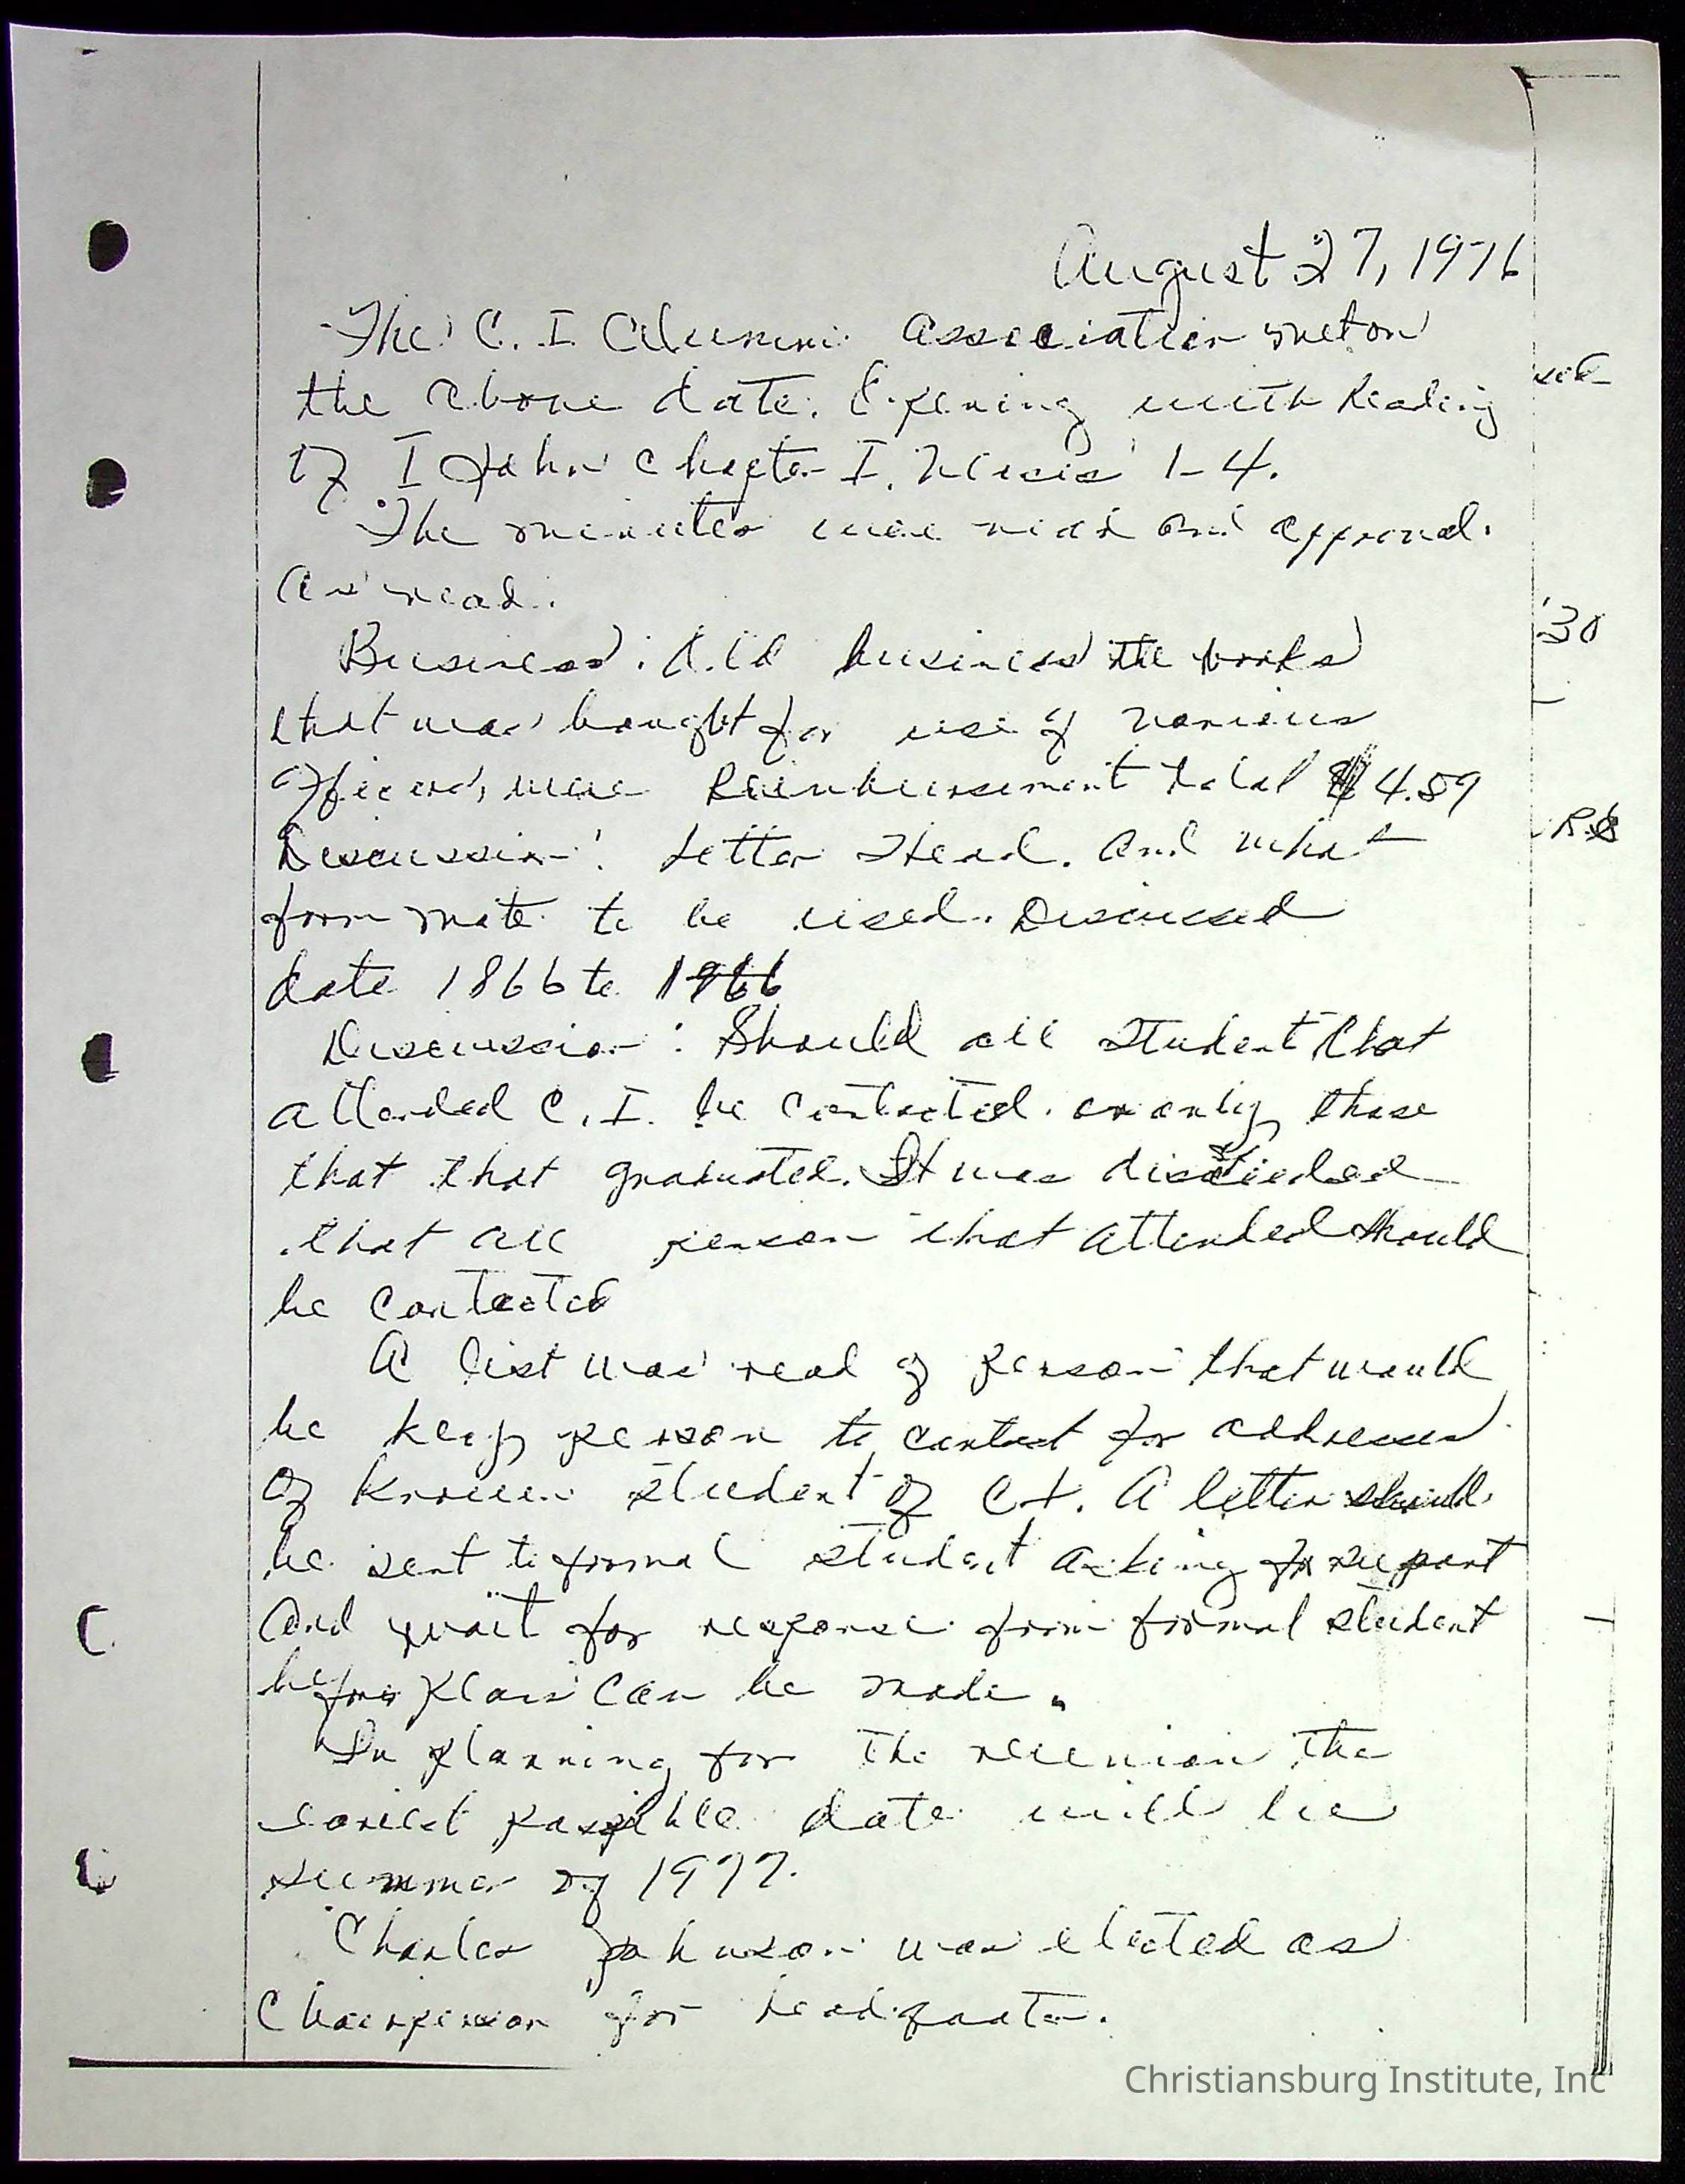 August 27, 1976
The C. I Alumni Association met on
the above date. Opening with Reading
of I John Chapter I, Verses 1-4.
The minutes were read and approved.
As read.
Business: Old business the books
that was bought for use of various
officers, were Reimbursement total $4.89
Discussion: Letter Head. And what
form mate to be used. Discussed
date 1866 to 1966
Discussion: Should all student that
attended C. I. be contacted or only those
that that graduated. It was
that all person that attended should
be contacted
A list was read of person that would
be key person to contact for addresses
of known student of C.I. A letter should
be sent to formal student asking for support
and wait for response from formal student
before plans can be made.
In planning for the reunion the
earliest possible date will be
summer of 1977.
Charles Johnson was elected as
Chairperson for headquater.
'30
Christiansburg Institute, Inc